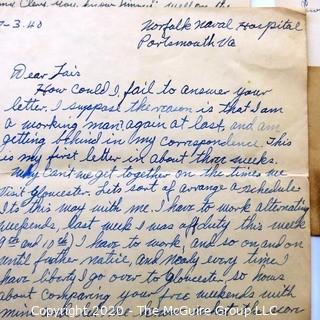 and Clara you know
7-3.40
Norfolk Naval Hospital
Portsmouth Va
Dear Lais
How could I fail to answer your
letter. I suppose the reason is that I am
a working man again at last, and am
getting behind in my correspondence. This
is my first letter in about three weeks.
Why can't we get together on the times we
visit Gloucester. Lets sort of arrange a schedule
Its this way with me. I have to work alternating
weekends, last week I was off duty this week
9th and 10th) I have to work, and so on and on
until further notice, and nearly every time I
have liberty I go over to Gloucester, so hows
about comparing your free weekends with
Copyright 2020 - The McGuire Group LLC